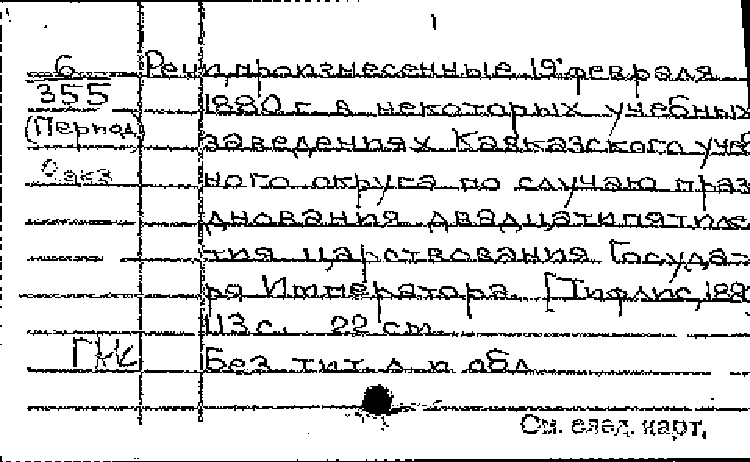 6
355
(Период)
2 экз
Речи, произнесенные 19 февраля
1880 г. в некоторых учебных
заведениях Кавказского учеб
ного округа по случаю праз
днования двадцатипятиле
тия царствования Государ
ря Императора. [Тифлис, 188
113 с. 22 см.
Без тит. л. и обл
См. след. карт.